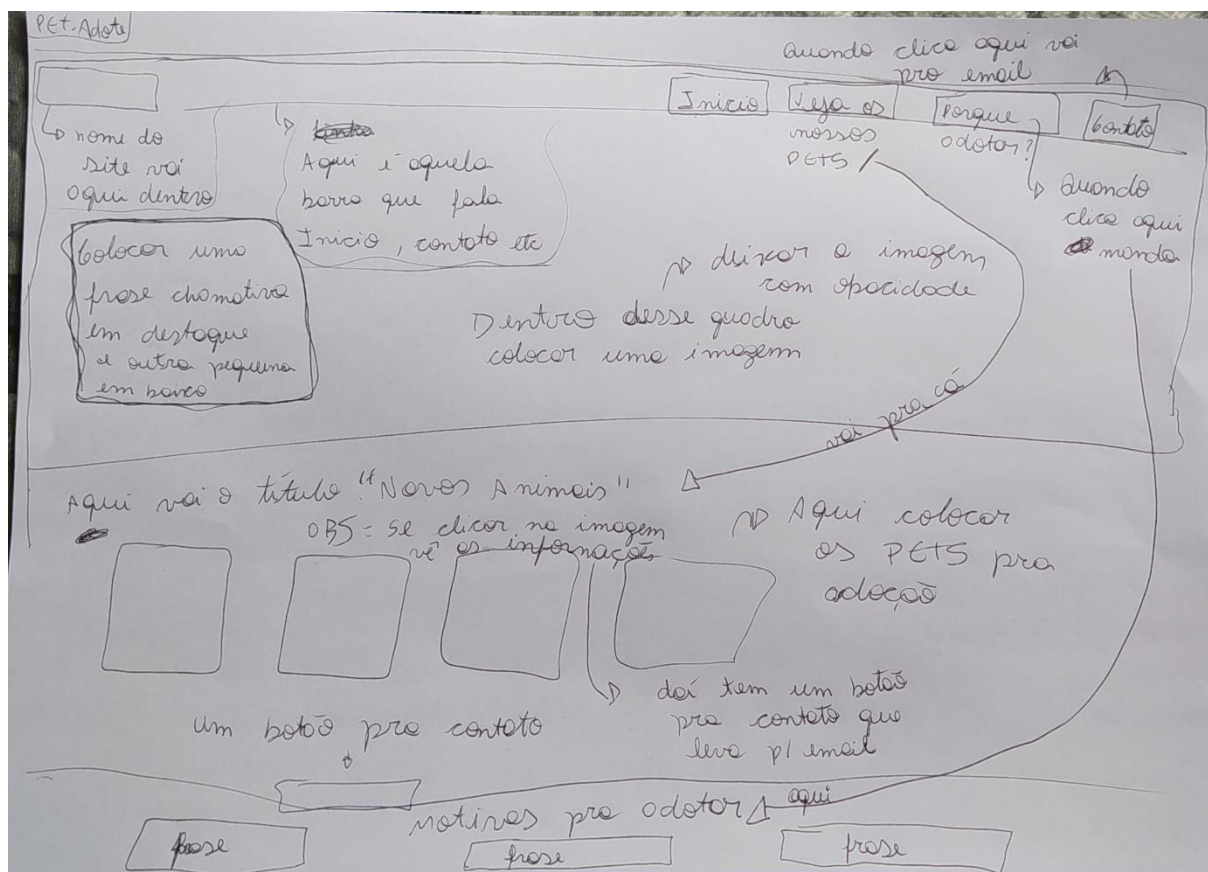 PET-Adote
Quando clica aqui vai
pro email
Inicio
Veja os
nossos
PETS
Porque
adotar?
Contato
nome do
site vai
aqui dentro
Aqui é aquela
barra que fala
Inicio, contato etc
Quando
clica aqui
manda
Colocar uma
frase chamativa
em destaque
e outra pequena
em baixo
deixar a imagem
com opacidade
Dentro desse quadro
colocar uma imagem
vai pra cá
Aqui vai o título "Novos Animais"
OBS = se clicar na imagem
vê as informações
Aqui colocar
os PETS pra
adoção
daí tem um botão
pra contato que
leva p/ email
um botão pra contato
motivos pra adotar
aqui
frase
frase
frase